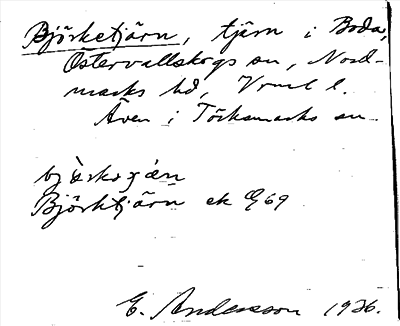 Björketjärn, tjärn i Boda,
Östervallskogs sn, Nord-
marks hd, Vrml l.
Även i Töcksmarks sn.
Björktjärn ek G69
E. Andersson 1936.